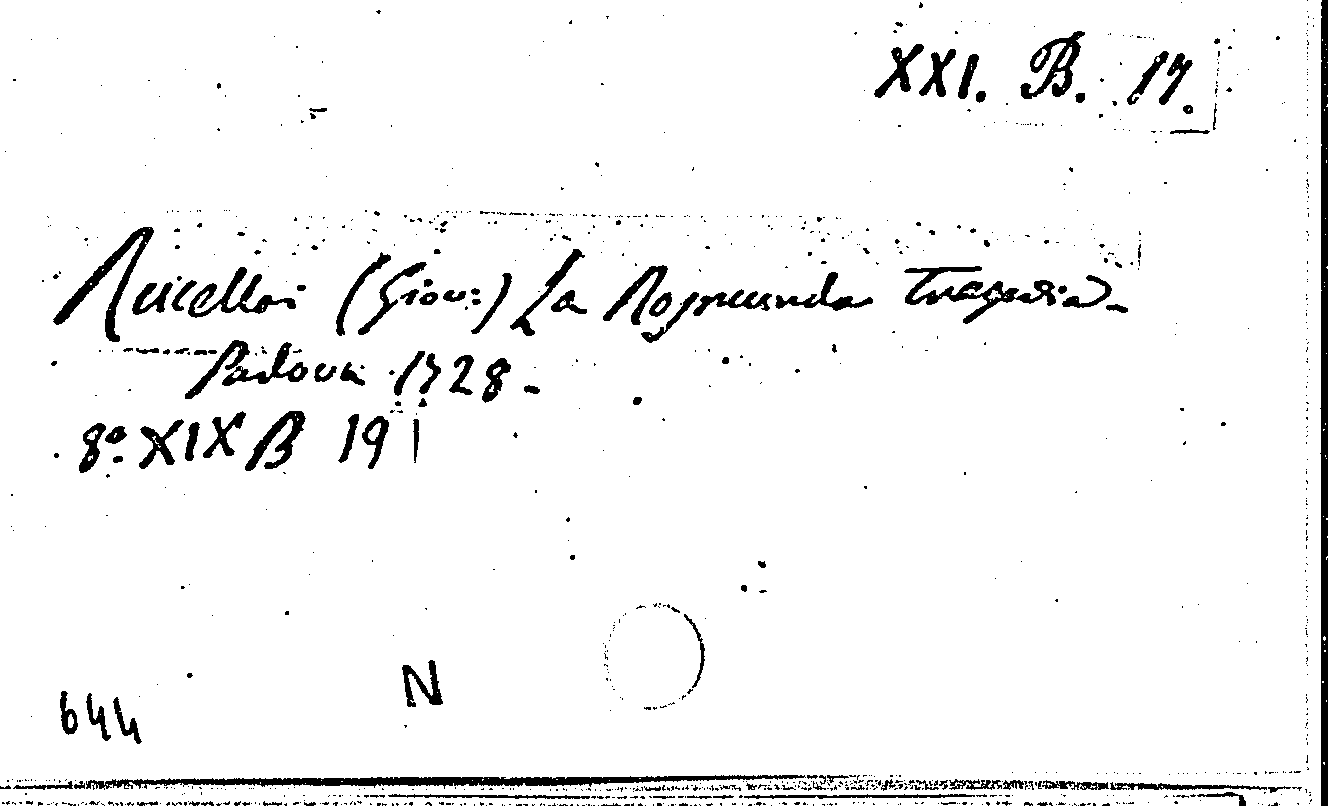 XXI. B. 17.
Rucellai (Giov:) La Rosmunda Tragedia -
Padova 1728 -
8º XIX B 19
644
N